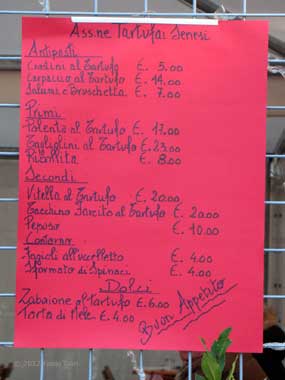 Ass.ne Tartufai Senesi
Antipasti
Crostini al Tartufo €. 5.00
Carpaccio al Tartufo €. 14.00
Salumi e Bruschetta €. 7.00
Primi
Polenta al Tartufo €. 17.00
Tagliolini al Tartufo €. 23.00
Ribollita €. 8.00
Secondi
Vitella al Tartufo €. 20.00
Tacchino Farcito al Tartufo €. 20.00
Peposo €. 10.00
Contorno
Fagioli all'uccelletto €. 4.00
Sformato di Spinaci €. 4.00
Dolci
Zabaione al tartufo €. 6.00
Torta di Mele €. 4.00
Buon Appetito